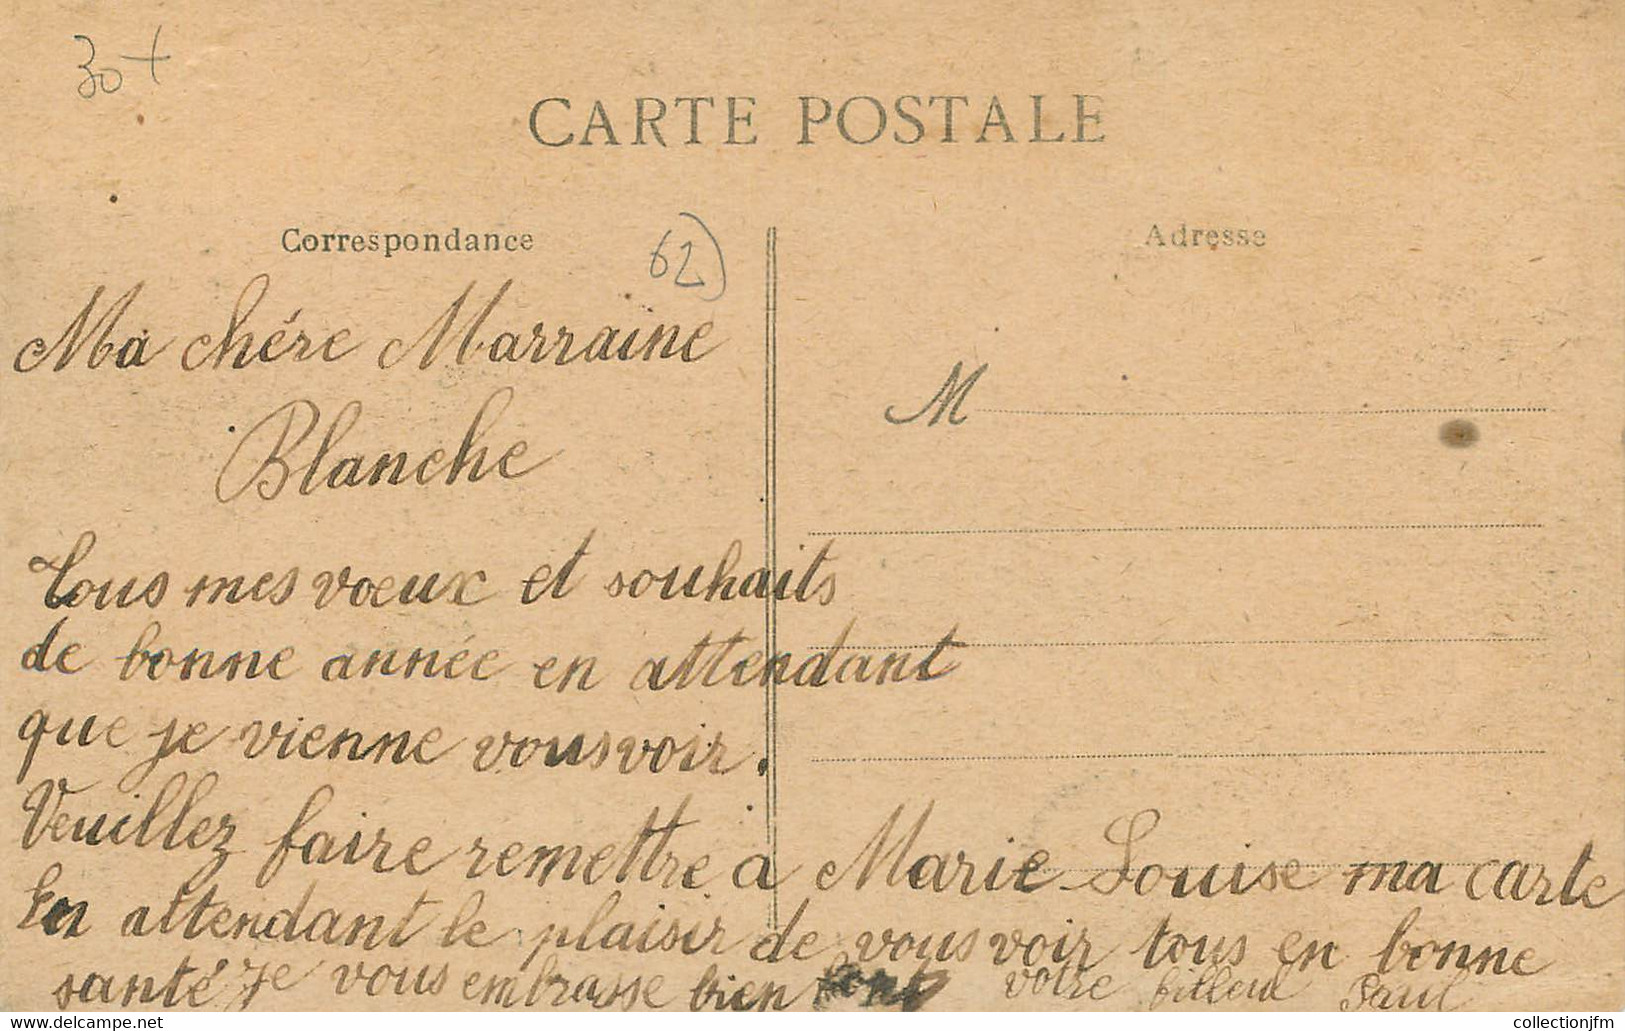 30+
CARTE POSTALE
Correspondance
62)
Adresse
Ma chére Marraine
Blanche
M
Tous mes vœux et souhaits
de bonne année en attendant
que je vienne vous voir.
Veuillez faire remettre à Marie-Louise ma carte
En attendant le plaisir de vous voir tous en bonne
santé je vous embrasse bien fort votre filleul Paul
delcampe.net
collectionjfm